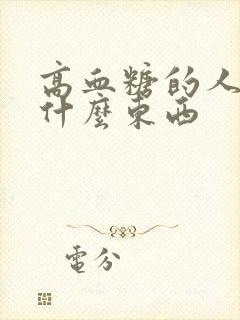 高血糖的人
什麼東西
電分